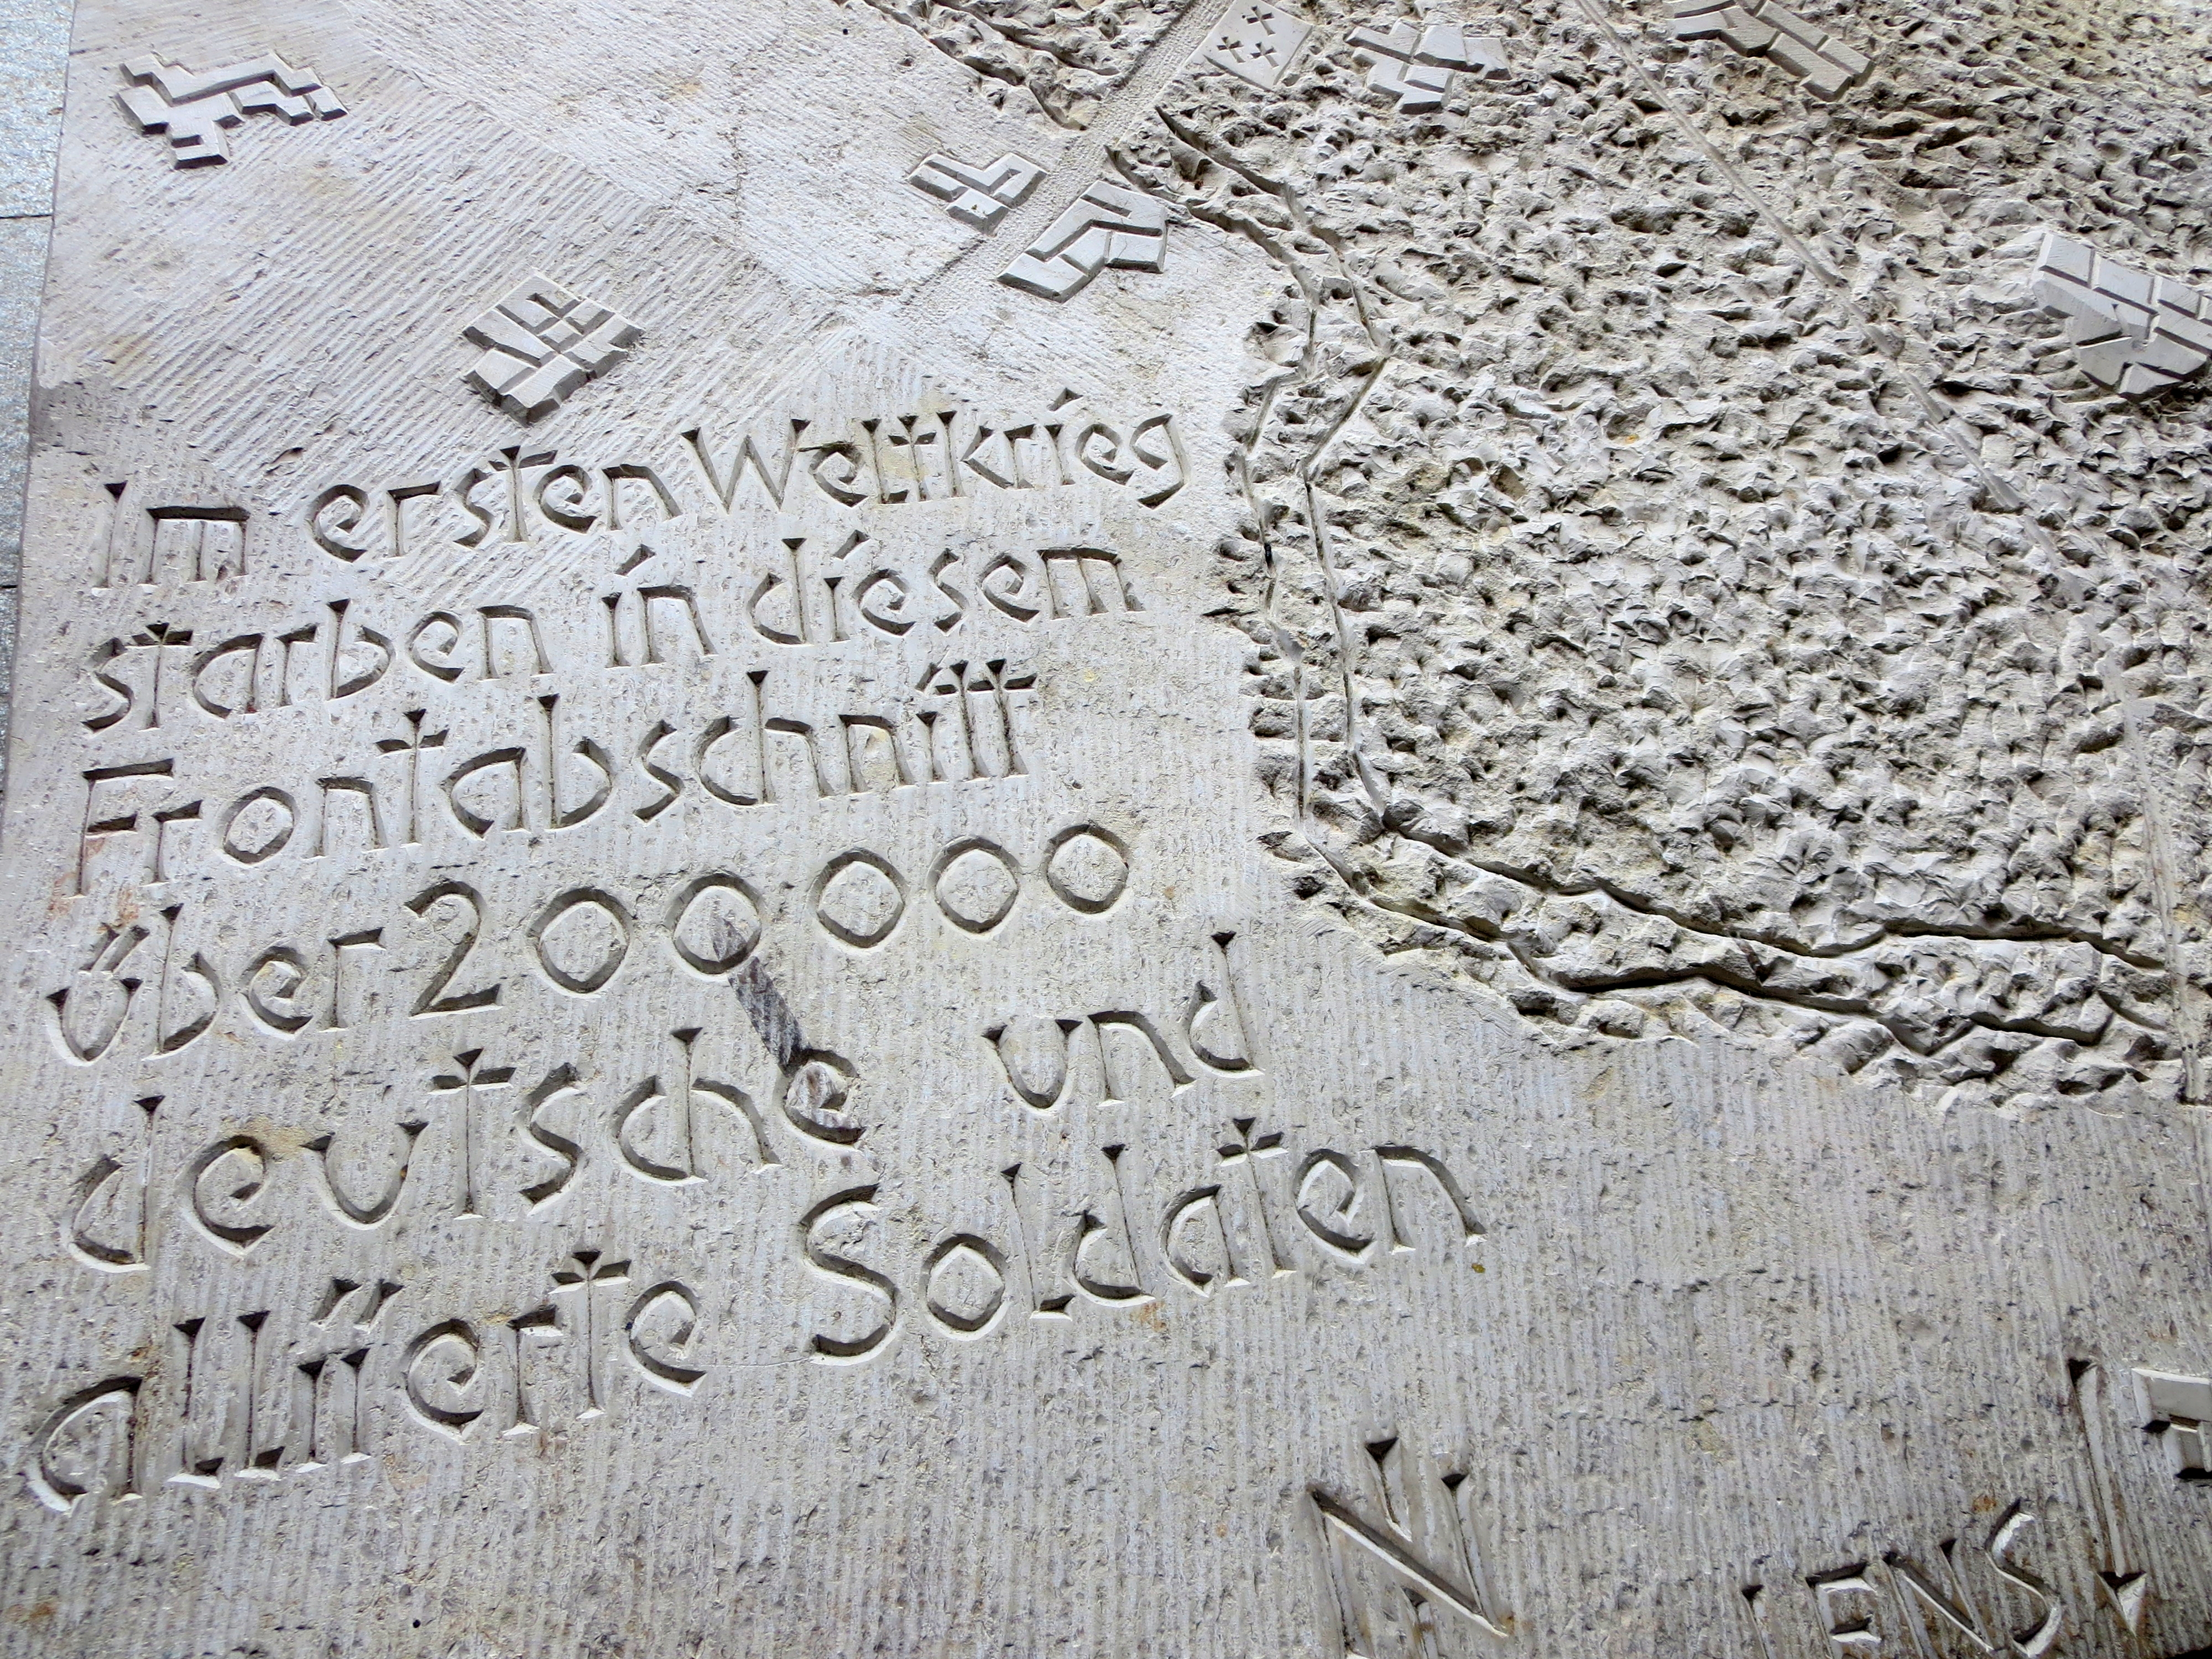 Im ersten Weltkrieg
starben in diesem
Frontabschnitt
über 200 000
deutsche und
alliierte Soldaten
N
LENS